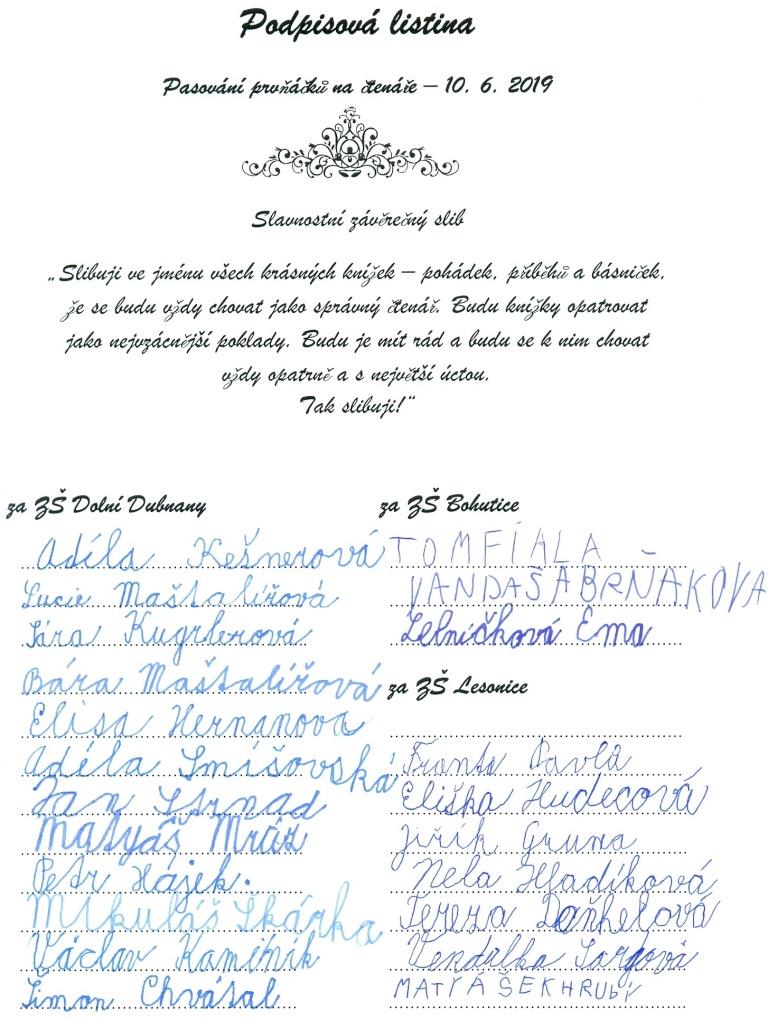 Podpisová listina
Pasování prvňáčků na čtenáře – 10. 6. 2019
Slavnostní závěrečný slib
„Slibuji ve jménu všech krásných knížek – pohádek, příběhů a básniček,
že se budu vždy chovat jako správný čtenář. Budu knížky opatrovat
jako nejvzácnější poklady. Budu je mít rád a budu se k nim chovat
vždy opatrně a s největší úctou.
Tak slibuji!“
za ZŠ Dolní Dubnany
Adéla Kešnerová
Lucie Maštalířová
Sára Kugrlerová
Bára Maštalířová
Elisa Hermanova
Adéla Smíšovská
Jan Strnad
Matyáš Mráz
Petr Hájek.
Mikuláš Skárka
Václav Kaminik
Šimon Chvátal
za ZŠ Bohutice
TOM FIALA
VANDA ŠABRŇAKOVA
Zelníčková Ema
za ZŠ Lesonice
Franta Pavla
Eliška Hudecová
Jiřík Gruna
Nela Hladíková
Tereza Daňhelová
Vendulka Sargová
MATYÁŠEK HRUBY